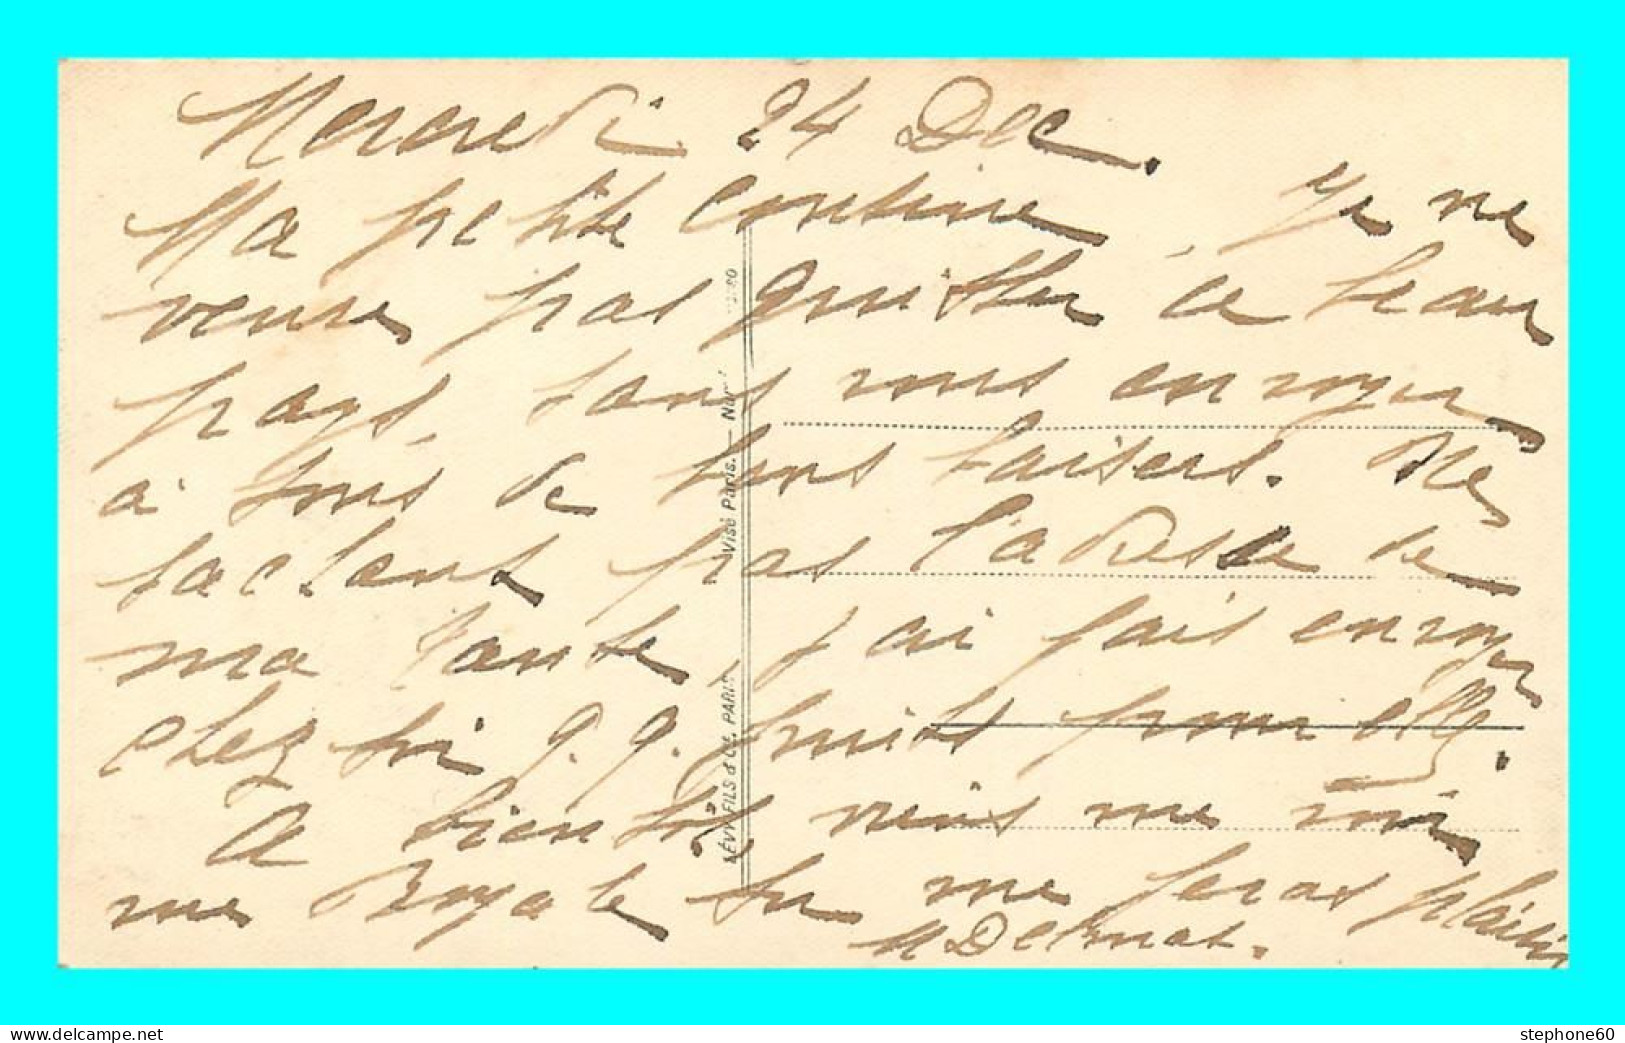 Mercredi 24 Dec.
Ma petite cousine, Je ne
veux pas quitter ce beau
pays, sans vous envoyer
à tous de bons baisers. Ne
sachant pas l'adresse de
ma tante, j'ai fait envoyer
chez toi q.q. fruits pour elle.
A bientôt, viens me voir
rue Royale tu me feras plaisir
M Delmas.
Visé Paris. — Num
LÉVY FILS & Cie. PARIS
stephone60
www.delcampe.net